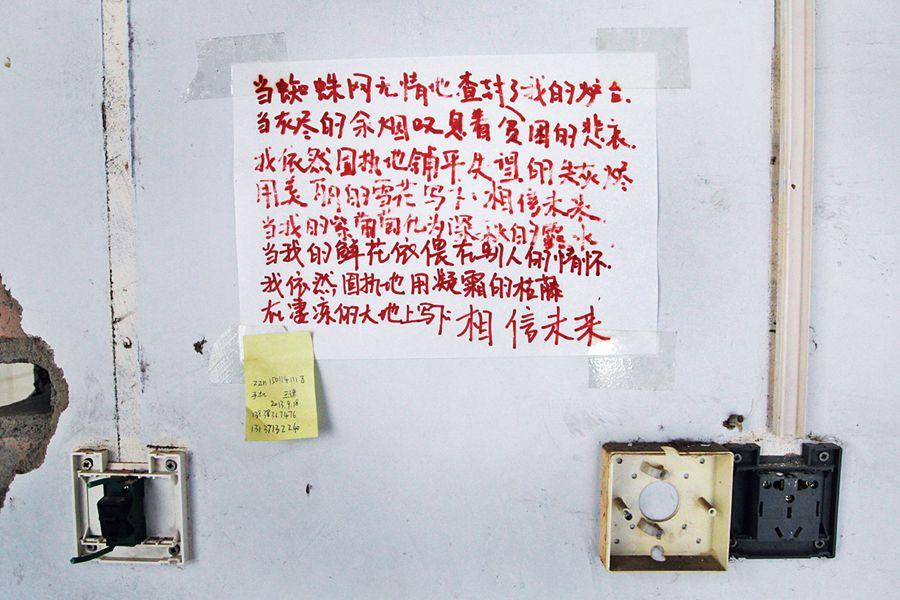 当蜘蛛网无情地查封了我的炉台.
当灰烬的余烟叹息着贫困的悲哀.
我依然固执地铺平失望的失灰烬
用美丽的雪花写下.相信未来.
当我的紫葡萄化为深秋的露水.
当我的鲜花依偎在别人的情怀.
我依然固执地用凝霜的枯藤
在凄凉的大地上写下相信未来
2013.9.18
13137132240